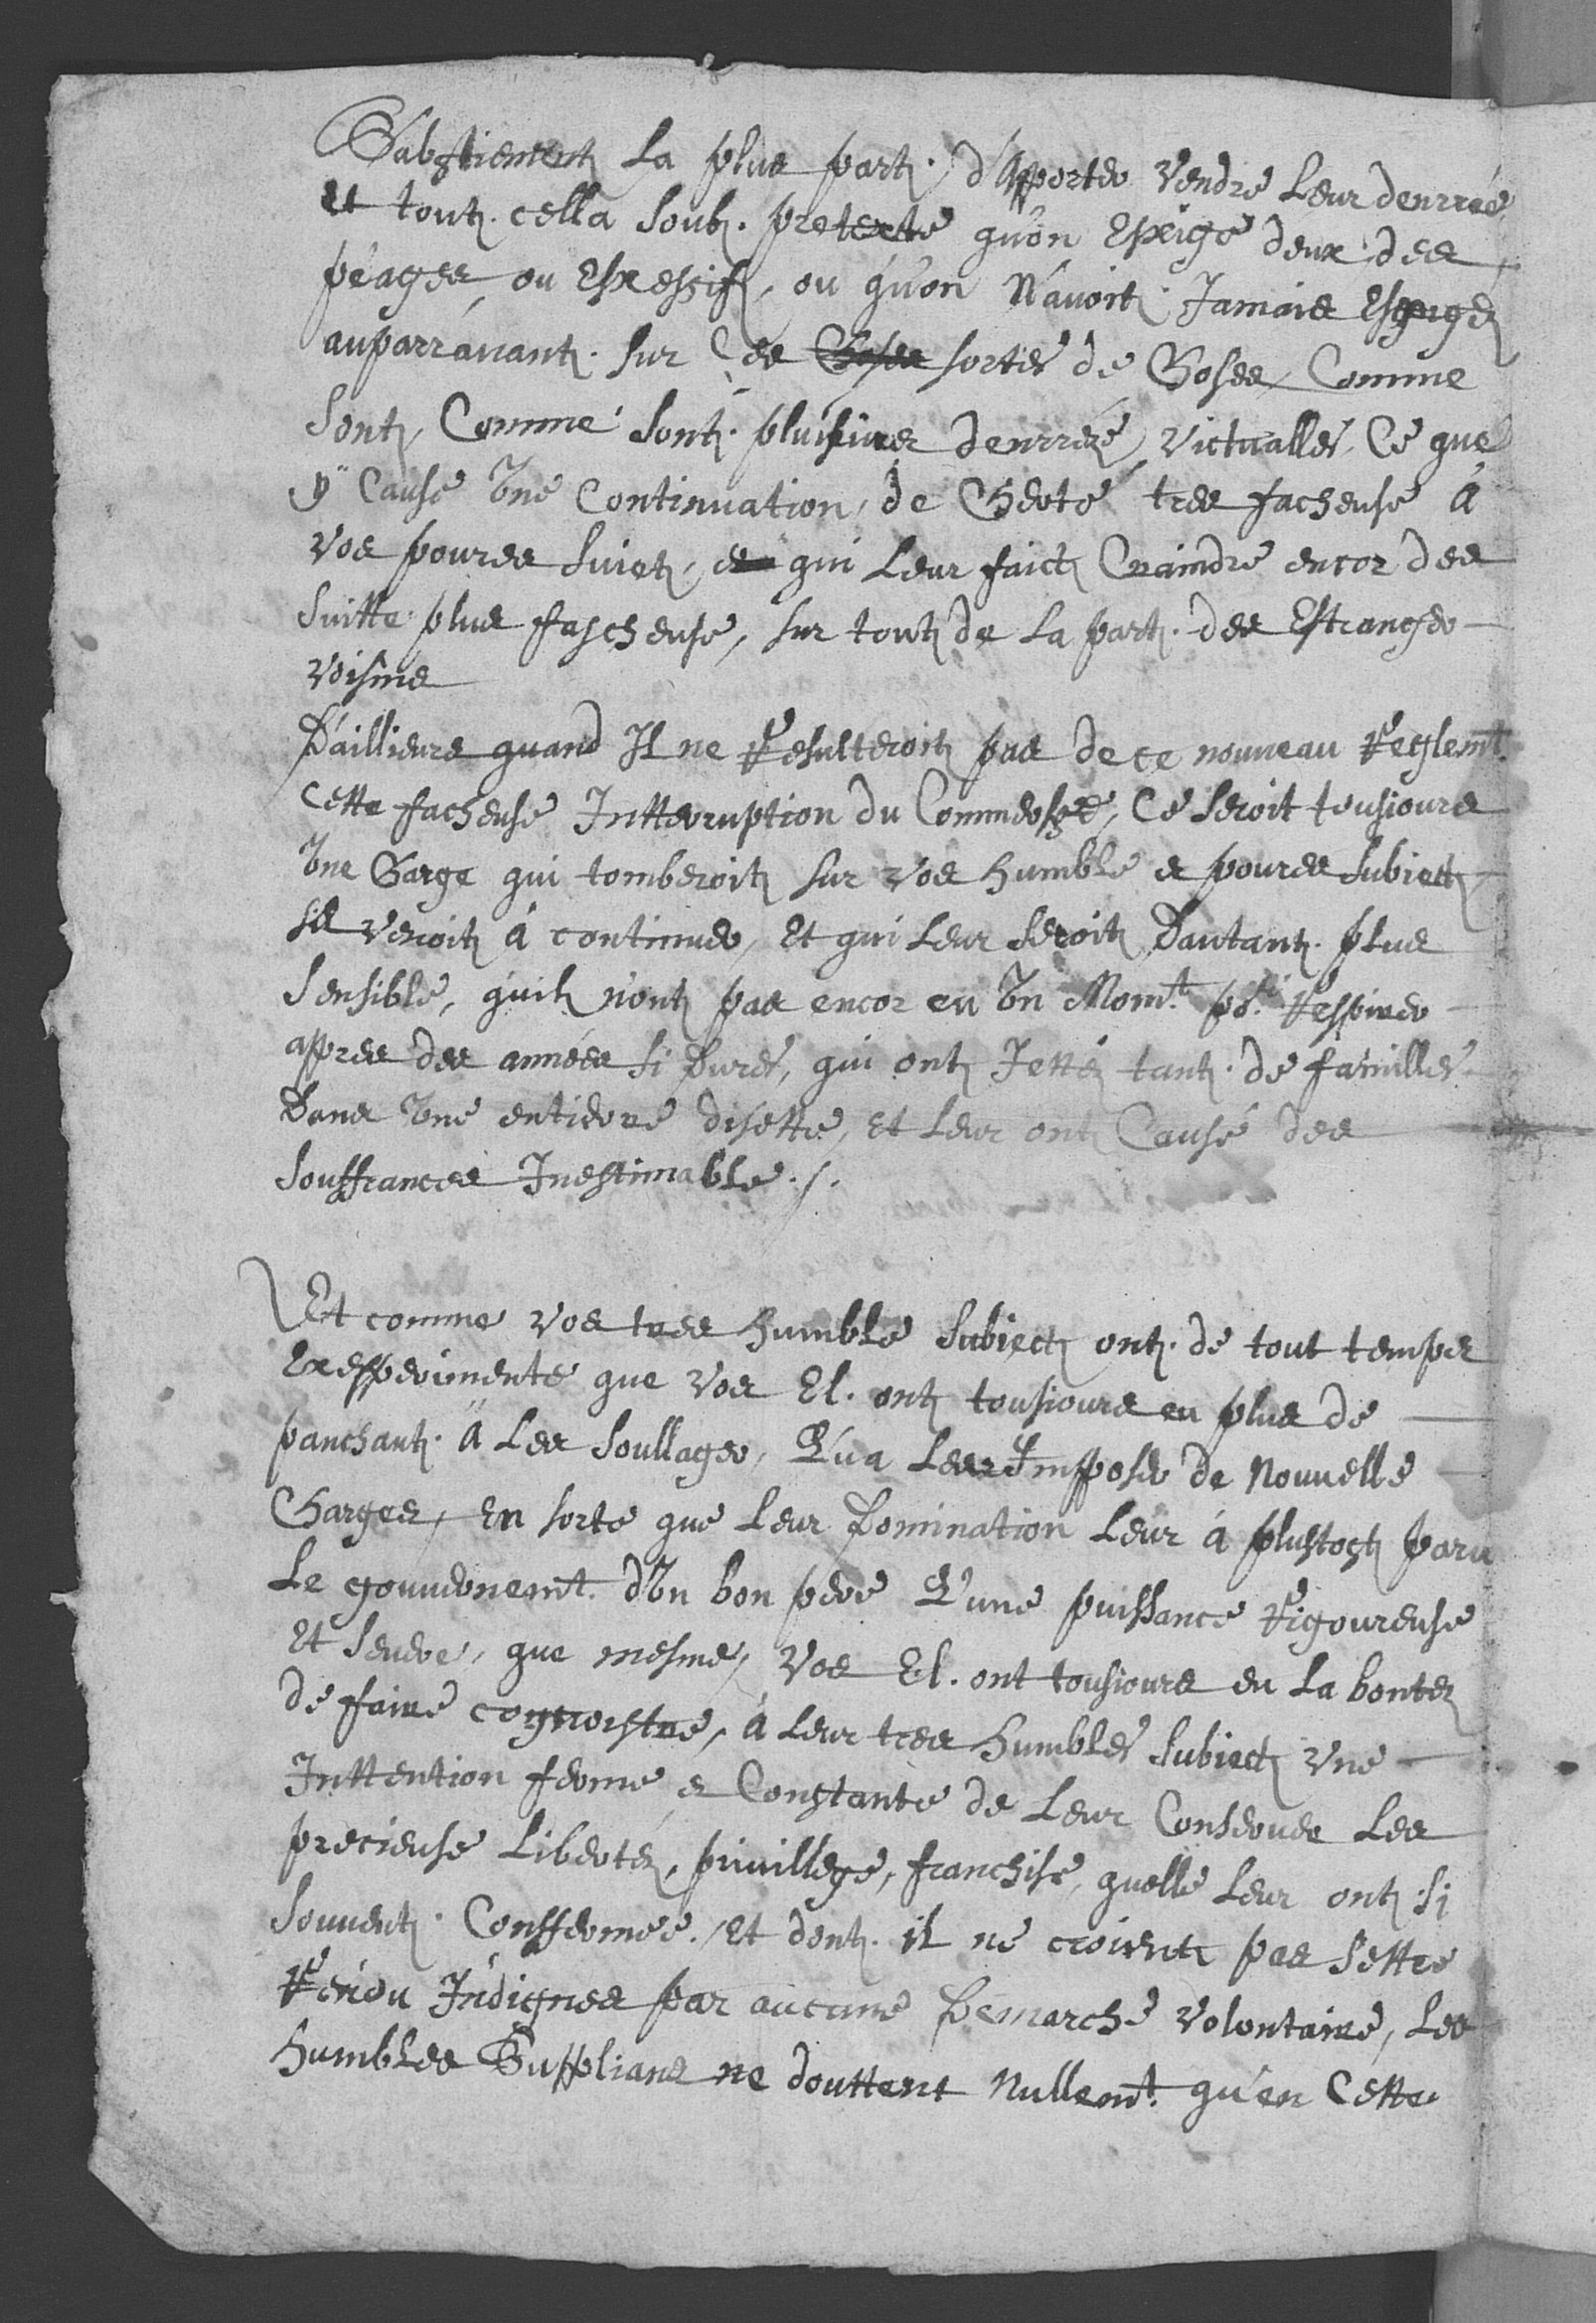 S'abstienent la plus part d'apporter vendre leur denrrée
et tout cella soub pretexte qu'on exige deux des
péages ou exessifs, ou qu'on n'avoit jamais exigés
auparravant sur ces choses sortes de choses comme
sont, comme sont plusieurs denrrées victualles, ce que
y cause une continuation de cherté tres facheuse à
vos poures suiets, et qui leur faict craindre encor des
suitte plus fascheuse, sur tout de la part des estranger
voisins
D'aillieurs quand il ne resulteroit pas de ce nouveau reglemt.
cette facheuse intterruption du commerse, ce seroit tousiours
une charge qui tomberoit sur vos humble et poures subiects
sil venoit à continuer, et qui leur seroit dautant plus
sensible, quils n'ont pas encor eu un momt. pr. respirer
apres des années si dures, qui ont jettéz tant de familles
dans une entiere disette, et leur ont causé des
souffrances inestimable.
Et comme vos tres humble subiects ont de tout temps
exesperimenté que vos El. ont tousiours eu plus de
panchant à les soullager, qu'a leur imposer de nouvelle
charges, en sorte que leur domination leur à plustost paru
le gouvernemt. d'un bon pere qu'une puissance rigoureuse
et severe, que mesme, vos El. ont tousiours eu la bontéz
de faire cognoistre, à leur tres humbles subiects une
inttention ferme et constante de leur conserver les
precieuse libertéz, privillege, franchise, quelle leur ont si
souvent confferméé. Et dont il ne croient pas settre
rendu indignes par aucune demarche volontaire, les
humbles supplians ne douttent nullemt. qu'en cette